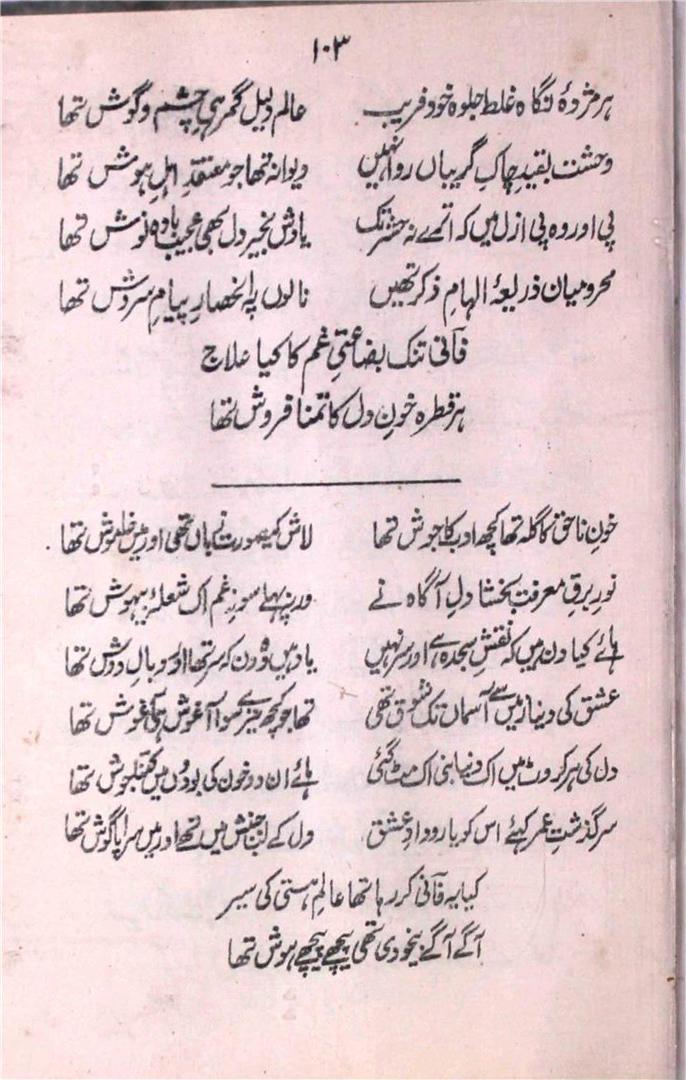 ۱۰۳
ہر مژدۂ نگاہ غلط جلوہ خود فریب عالم دلیل گمرہیِ چشم و گوش تھا
وحشت بقیدِ چاکِ گریباں روا نہیں دیوانہ تھا جو معتقدِ اہلِ ہوش تھا
پی اور وہ پی ازل میں کہ اترے نہ حشر تک یادش بخیر دل بھی عجیب بادہ نوش تھا
محرومیاں ذریعۂ الہامِ ذکر تھیں نالوں پہ انحصارِ پیامِ سروش تھا
فانی تنک بضاعتیِ غم کا کیا علاج
ہر قطرہ خونِ دل کا تمنا فروش تھا
خونِ ناحق کا گلہ تھا کچھ ادب کا جوش تھا لاش کی صورت زباں تھی اور میں خاموش تھا
نورِ برقِ معرفت بخشا دلِ آگاہ نے ورنہ پہلے سوزِ غم اک شعلۂ بیہوش تھا
ہائے کیا دن ہیں کہ نقشِ سجدہ ہے اور سر نہیں یاد ہیں وہ دن کہ سر تھا اور وبالِ دوش تھا
عشق کی دنیا زمیں سے آسماں تک شوق تھی تھا جو کچھ تیرے سوا آغوش ہی آغوش تھا
دل کی ہر کروٹ میں اک دنیا بنی اک مٹ گئی ہائے ان دو خون کی بوندوں میں کتنا جوش تھا
سرگذشتِ عمر کہئے اس کو یا رودادِ عشق دل کے لب جنبش میں تھے اور میں سراپا گوش تھا
کیا یہ فانی کر رہا تھا عالمِ ہستی کی سیر
آگے آگے بیخودی تھی پیچھے پیچھے ہوش تھا